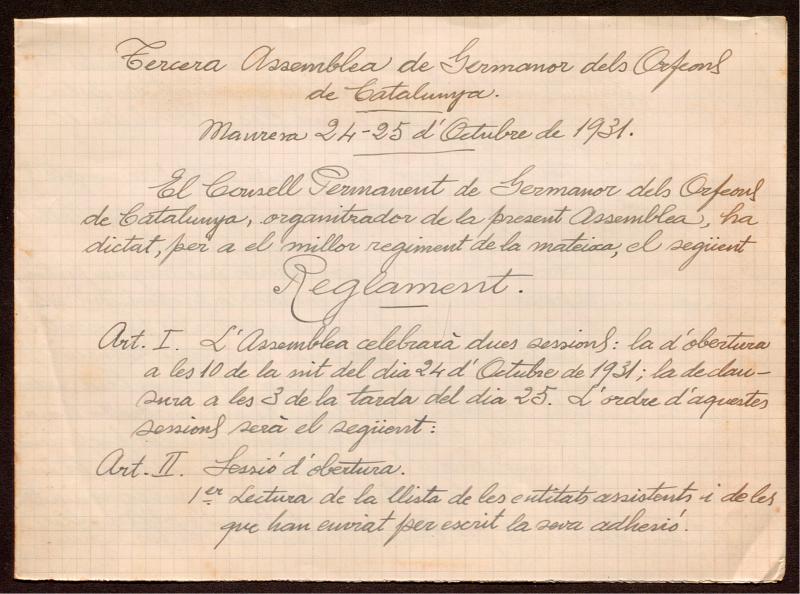 Tercera Assemblea de Germanor dels Orfeons
de Catalunya.
Manresa 24-25 d'Octubre de 1931.
El Consell Permanent de Germanor dels Orfeons
de Catalunya, organitzador de la present Assemblea, ha
dictat, per a el millor regiment de la mateixa, el següent
Reglament.
Art. I. L'Assemblea celebrarà dues sessions: la d'obertura
a les 10 de la nit del dia 24 d'Octubre de 1931; la de clau-
sura a les 3 de la tarda del dia 25. L'ordre d'aquestes
sessions serà el següent:
Art. II. Sessió d'obertura.
1er Lectura de la llista de les entitats assistents i de les
que han enviat per escrit la seva adhesió.